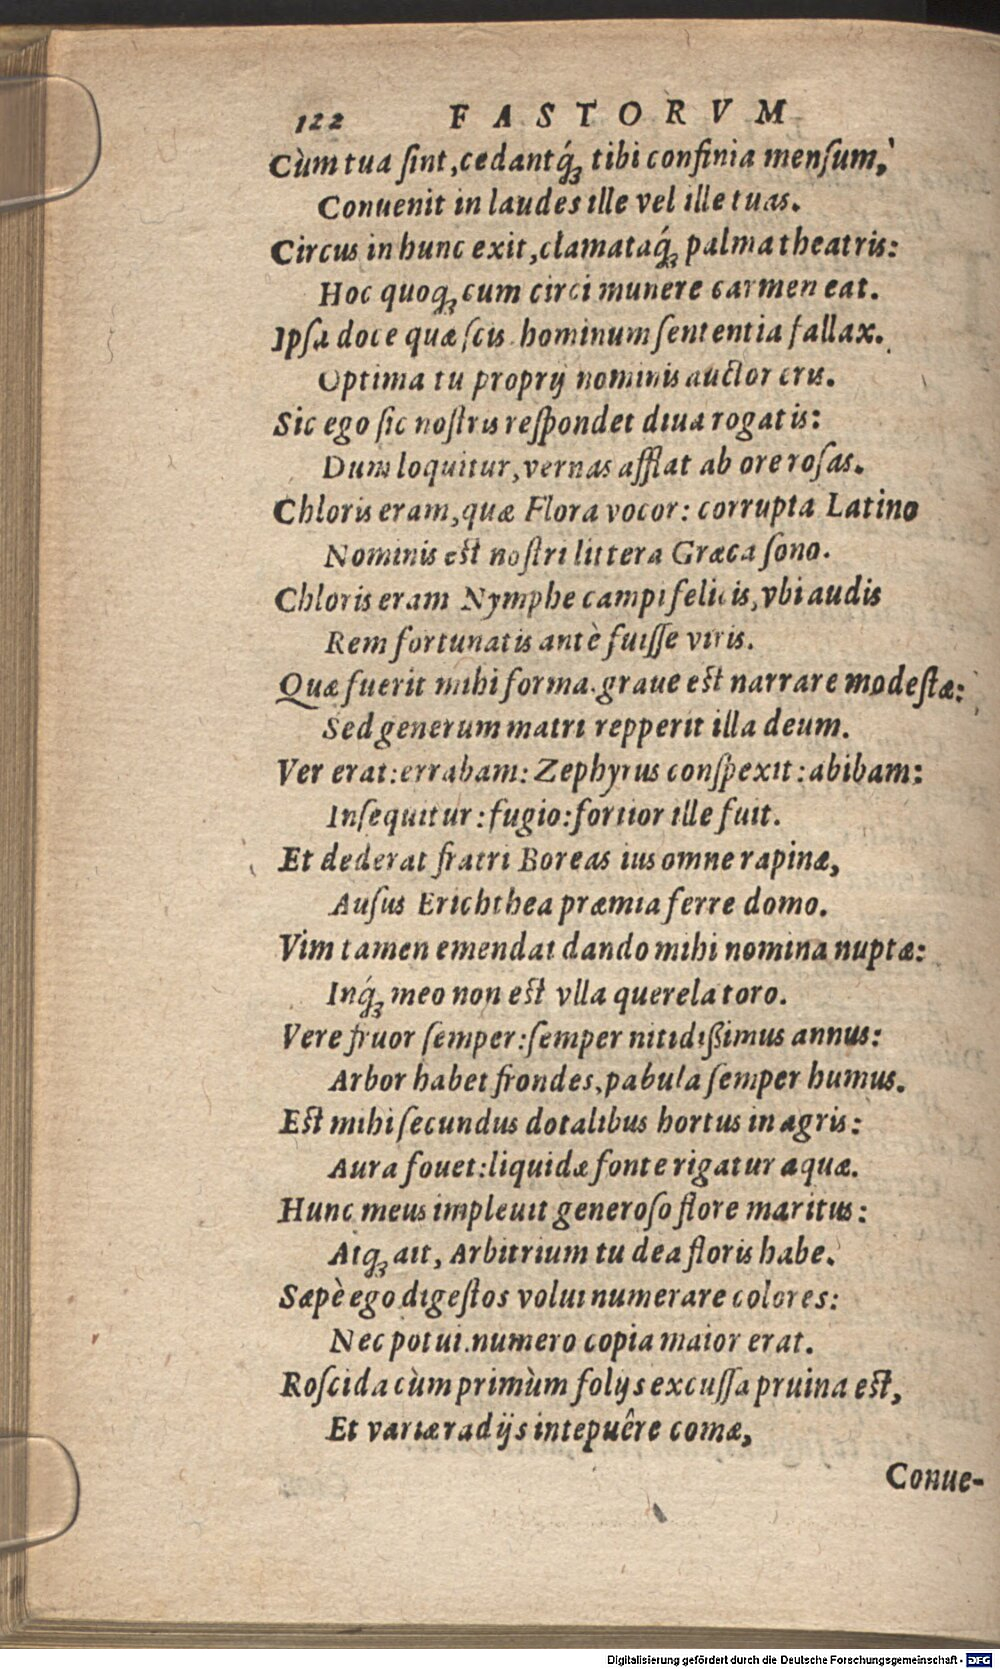 122 FASTORVM
Cùm tua ſint, cedantq́; tibi confinia menſum,
Conuenit in laudes ille vel ille tuas.
Circus in hunc exit, clamataq́; palma theatris:
Hoc quoq; cum circi munere carmen eat.
Ipſa doce quæ ſcis. hominum ſententia fallax.
Optima tu proprij nominis auctor eris.
Sic ego ſic noſtris reſpondet diua rogatis:
Dum loquitur, vernas afflat ab ore roſas.
Chloris eram, quæ Flora vocor: corrupta Latino
Nominis est noſtri littera Græca ſono.
Chloris eram Nymphe campi felicis, vbi audis
Rem fortunatis antè fuiſſe viris.
Quæ fuerit mihi forma. graue est narrare modeſtæ:
Sed generum matri repperit illa deum.
Ver erat: errabam: Zephyrus conſpexit: abibam:
Inſequitur: fugio: fortior ille fuit.
Et dederat fratri Boreas ius omne rapinæ,
Auſus Erichthea præmia ferre domo.
Vim tamen emendat dando mihi nomina nuptæ:
Inq́; meo non est vlla querela toro.
Vere fruor ſemper: ſemper nitidiſsimus annus:
Arbor habet frondes, pabula ſemper humus.
Est mihi ſecundus dotalibus hortus in agris:
Aura fouet: liquidæ fonte rigatur aquæ.
Hunc meus impleuit generoſo flore maritus:
Atq; ait, Arbitrium tu dea floris habe.
Sæpè ego digeſtos volui numerare colores:
Nec potui. numero copia maior erat.
Roſcida cùm primùm folijs excuſſa pruina est,
Et variæ radijs intepuêre comæ,
Conue-
Digitalisierung gefördert durch die Deutsche Forschungsgemeinschaft - DFG